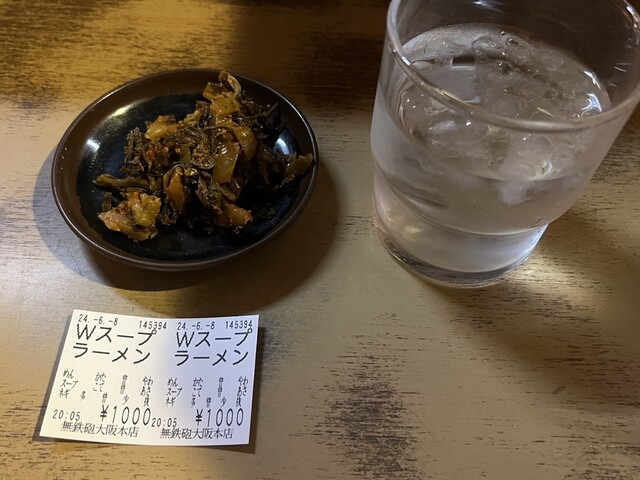 24.-6.-8 145394
Wスープ
ラーメン
めん かた 普 やわ
スープ こて 普 あさ
ネギ 多 普 少 抜
20:05 ¥1000
無鉄砲大阪本店
24.-6.-8 145394
Wスープ
ラーメン
めん かた 普 やわ
スープ こて 普 あさ
ネギ 多 普 少 抜
20:05 ¥1000
無鉄砲大阪本店